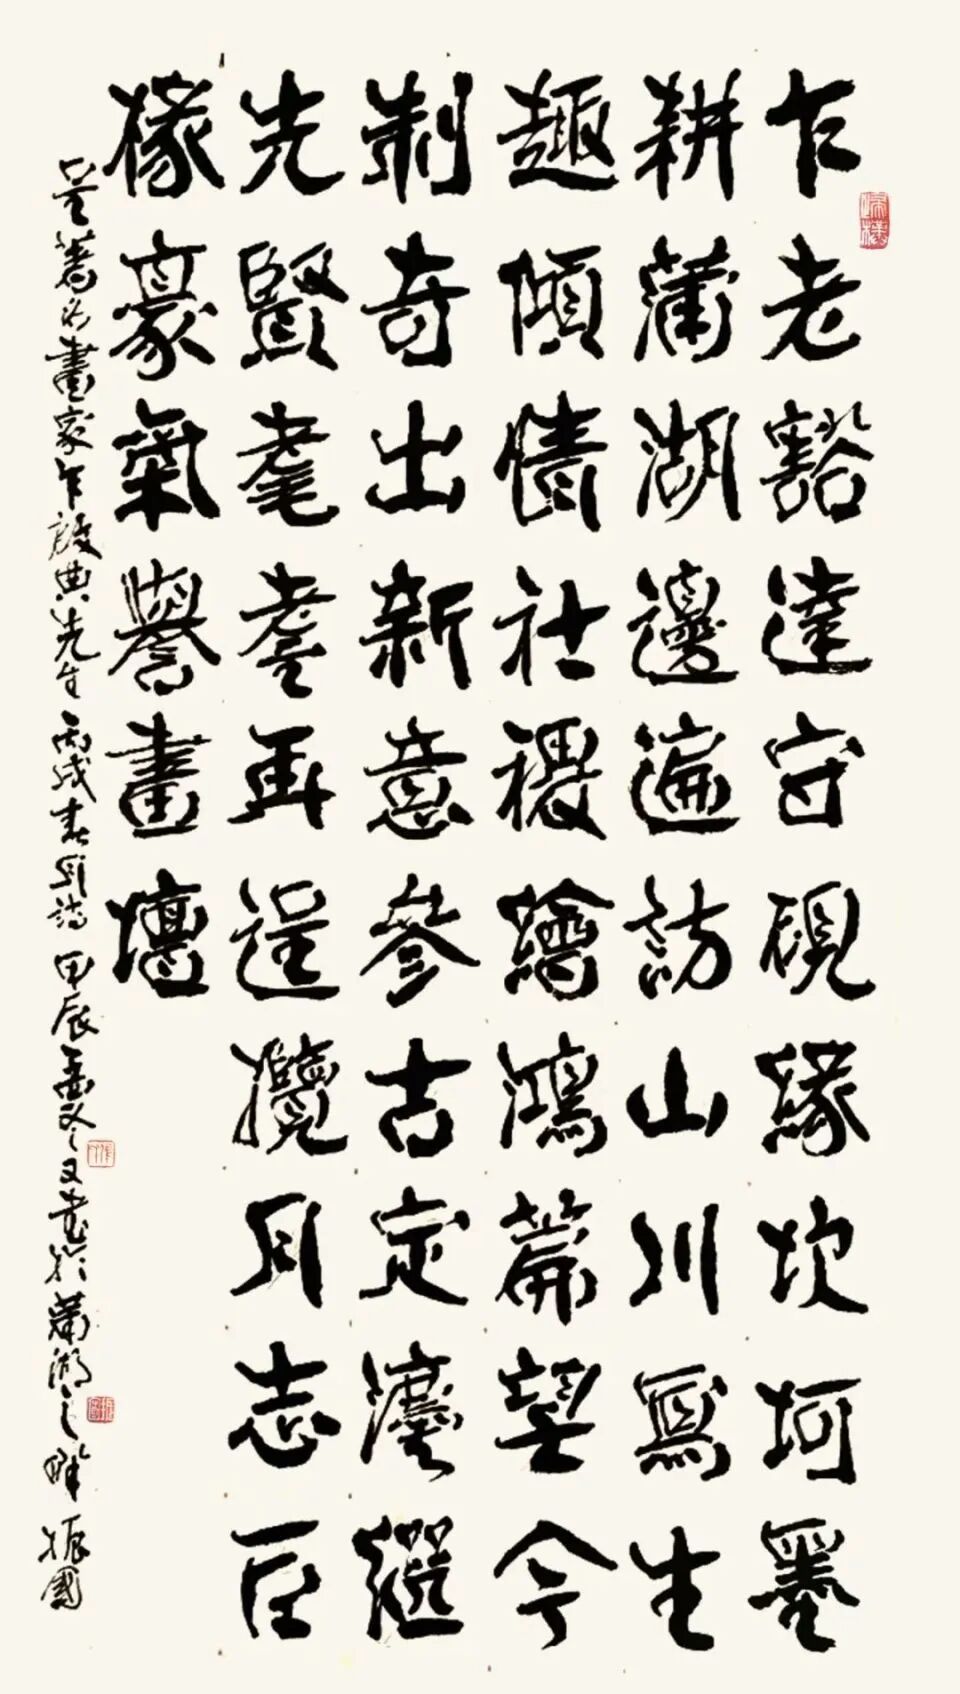 乍老豁達守硯緣坎坷墨
耕蒲湖邊遍訪山川寫生
趣傾情社稷繪鴻篇契今
制奇出新意參古定瀍繼
先賢耄耋再逞攬月志巨
椽豪氣譽畫壇
著名畫家乍啟典先生 丙戌春月詩 甲辰 之又書於蒲湖之畔 振國